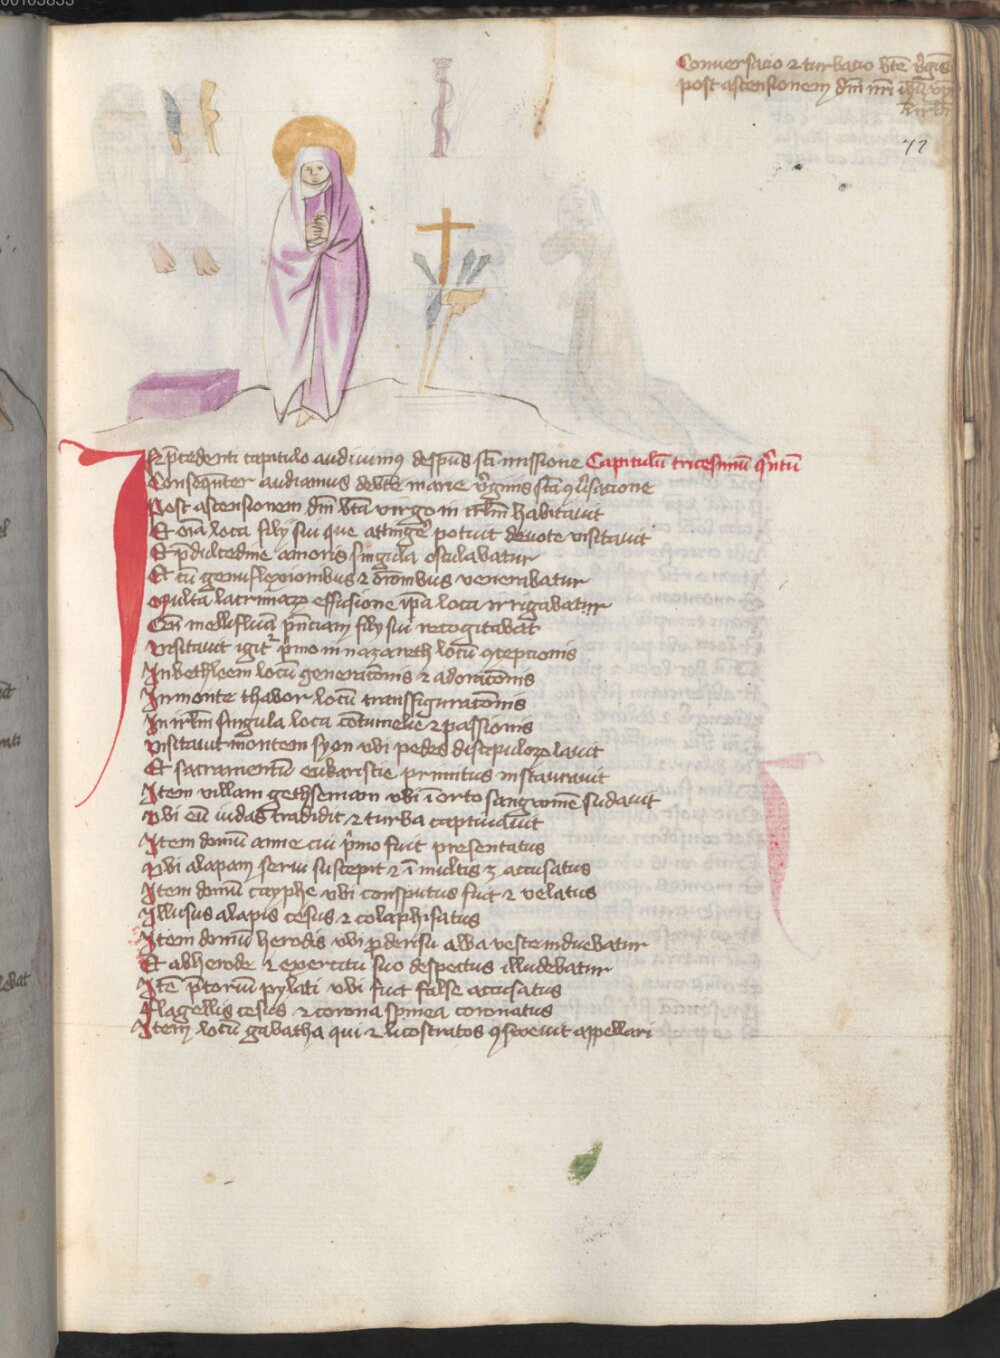 Conversacio ⁊ turbacio btē v̄gīs
post ascensionem dm̄ nr̄i ih̄u xp̄i
72
In p̄cedenti capitulo audiuimꝰ de spūs sc̄i missione Capitulū tricesimū qͥntū
Conseqn̄ter audiamus de btē marie v̄ginis sc̄a ꝯūsacione
Post ascensionem dm̄ bt̄a virgo in irl̄m habitauit
Et oīa loca filij sui que attingē potuit deuote visitauit
Et p̄ dulcedine amoris singula osculabatur
Et cū genuflexionibus ⁊ ōronibus venerabatur
Multa lacrimaꝝ effusione ip̄a loca irrigabatur
Cū melliflua pn̄ciam filij sui recogitabat
Visitauit igit͛ pͥmo in nazareth locū ꝯcepcionis
In bethleem locū generac̄onis ⁊ adorac̄onis
In monte thabor locū transfigurac̄onis
In irl̄m singula loca cōtumelie ⁊ passionis
Visitauit montem syon vbi pedes discipuloꝝ lauit
Et sacramentū eukaristie primitus instaurauit
Item villam gethsemani vbi ī orto sangwinē sudauit
Vbi eū iudas tradidit ⁊ turba captiuauit
Item domū anne cui pͥmo fuit presentatus
Vbi alapam serui suscepit ⁊ ī multis ē accusatus
Item domū cayphe vbi consputus fuit ⁊ velatus
Illusus alapis cesus ⁊ colaphisatus
Item domū herodis vbi ꝓ derisu alba veste induebatur
Et ab herode ⁊ exercitu suo despectus illudebatur
Itē p̄toriū pylati vbi fuit false accusatus
Flagellis cesus ⁊ corona spinea coronatus
Item locū gabatha qui ⁊ licostratos ꝯsweuit appellari